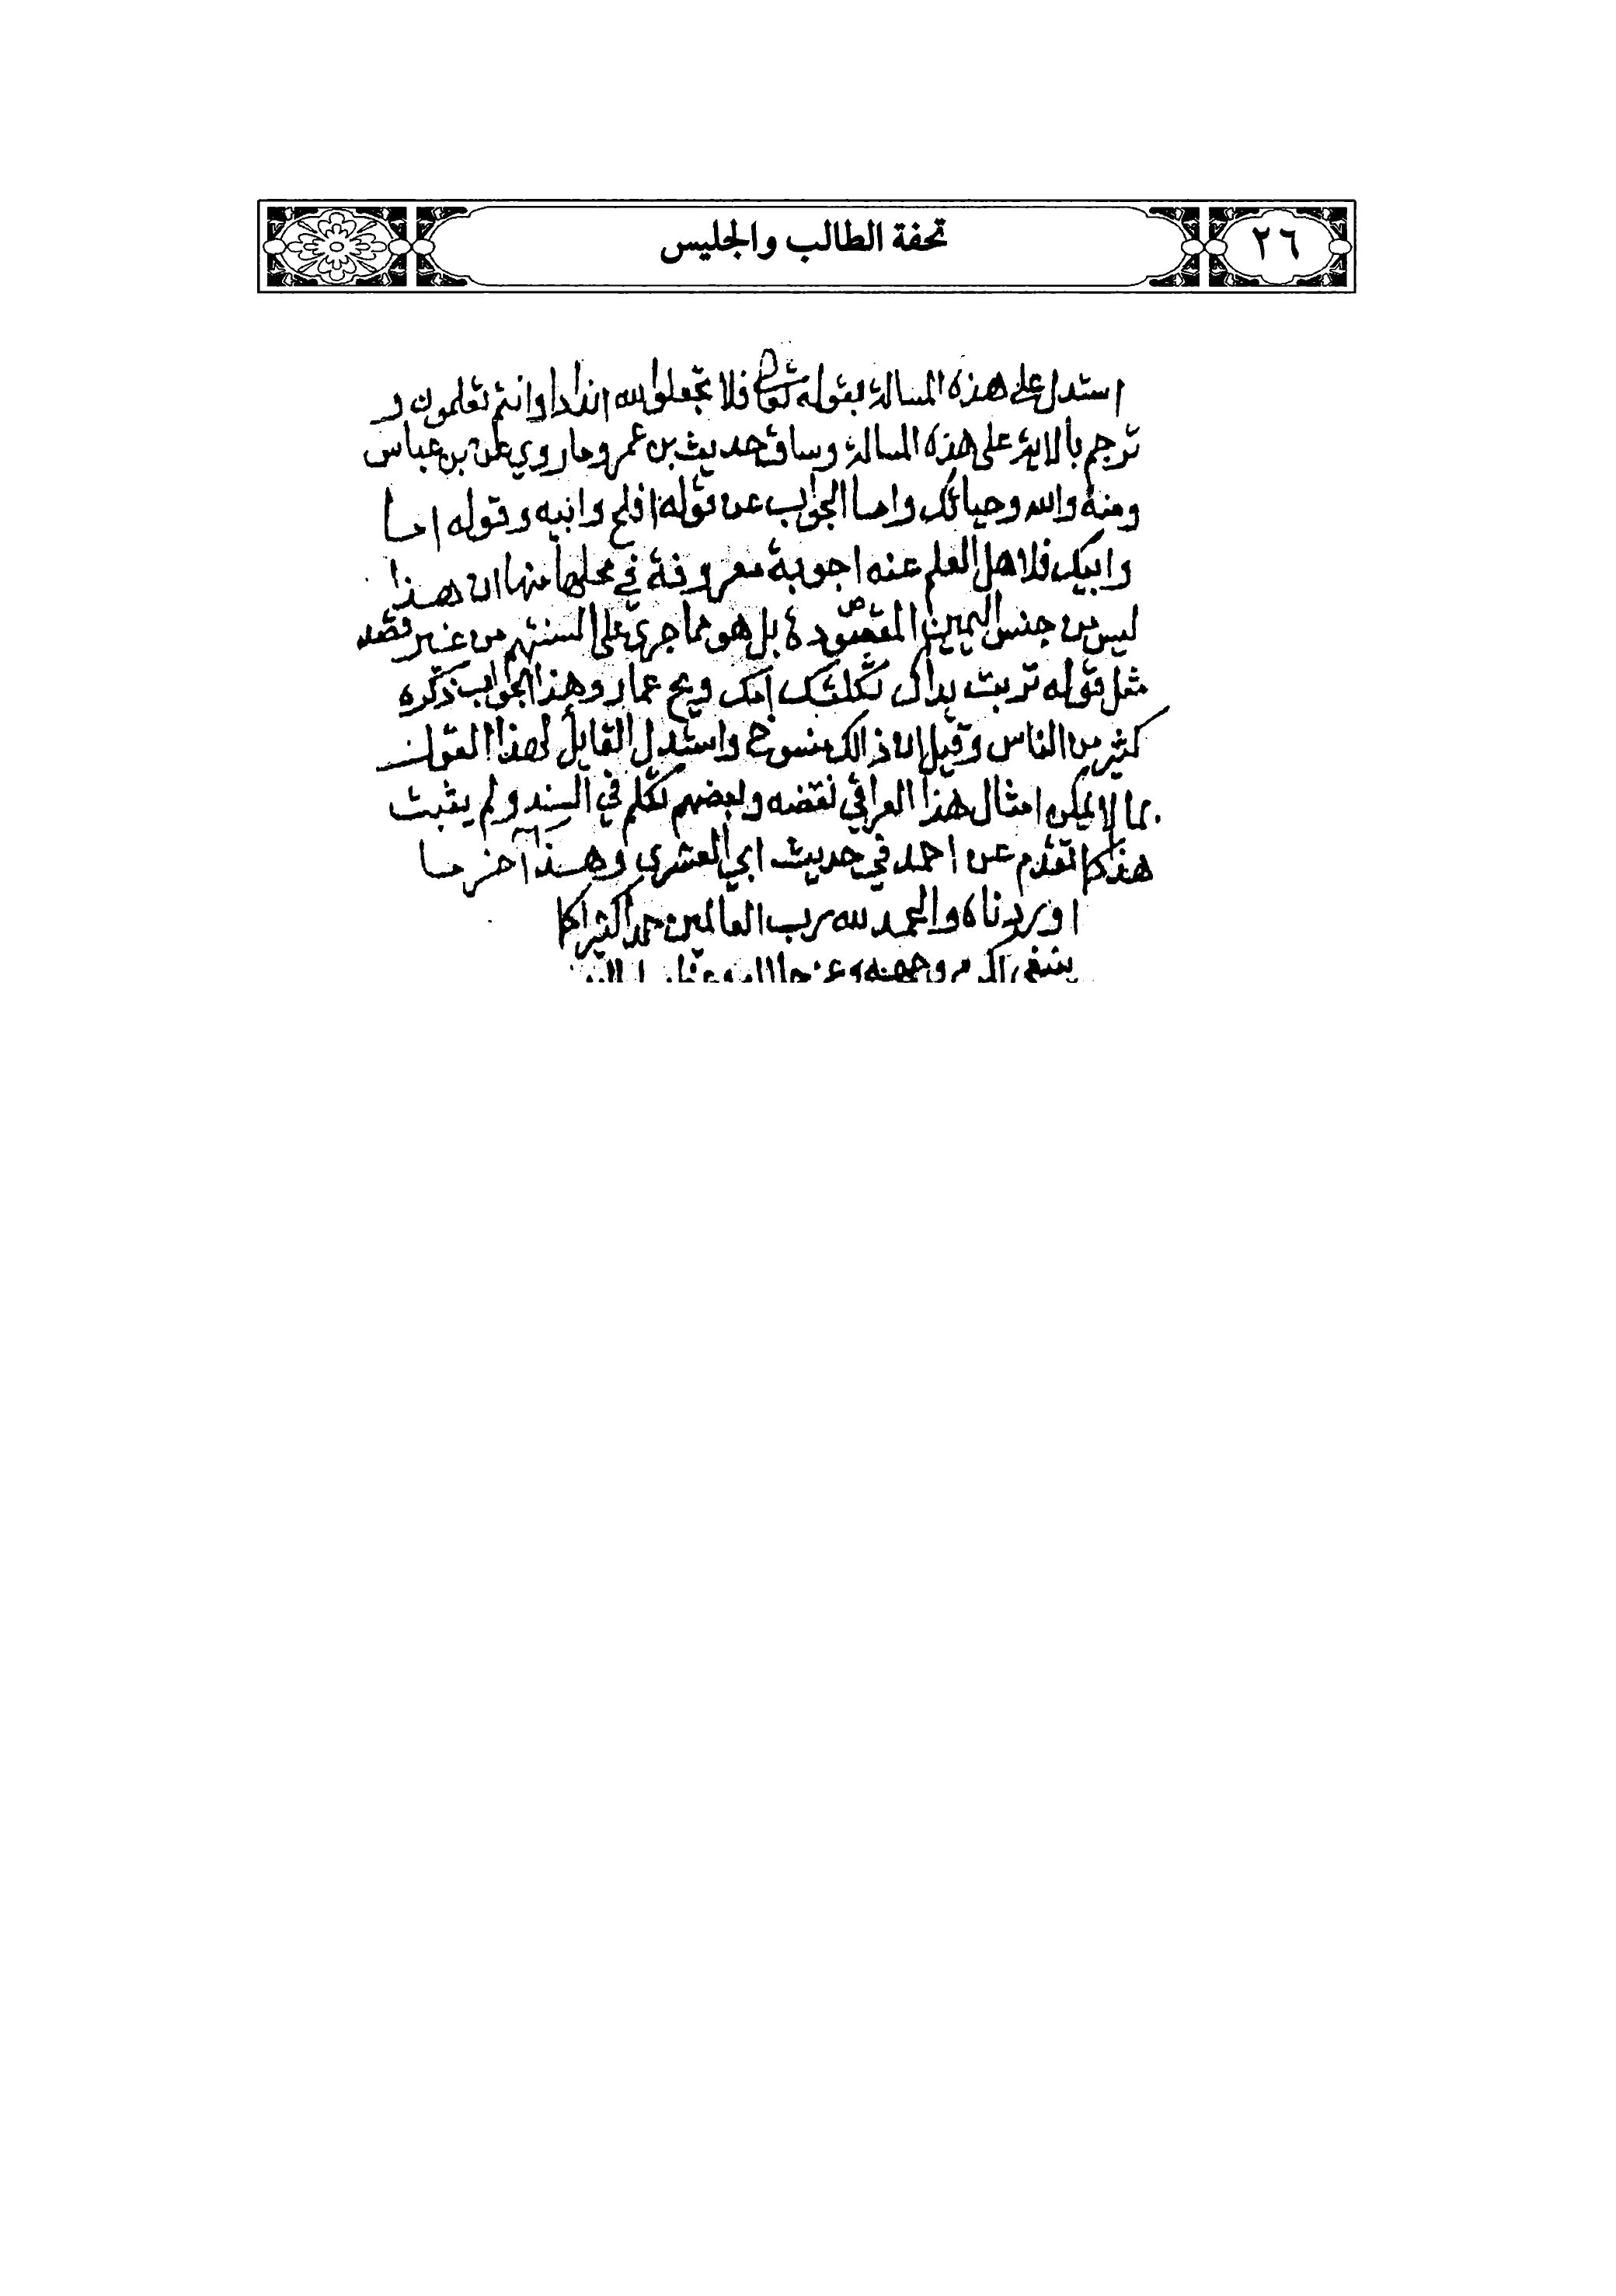 ٢٦
تحفة الطالب والجليس
استدل على هذه المسالة بقوله تعالى فلا تجعلوا لله اندادا وانتم تعلمون و
ترجم بالاية على هذه المسالة وساق حديث بن عمر وما روي عن بن عباس
ومنه والله وحياتك واما الجواب عن قوله افلح وابيه وقوله اما
وابيك فلاهل العلم عنه اجوبة معروفة في محلها منها ان هذا
ليس من جنس اليمين المقصوده بل هو مما جرى على السنتهم من غير قصد
مثل قوله تربت يداك ثكلتك امك ويح عمار وهذا الجواب ذكره
كثير من الناس وقيل ان ذالك منسوخ واستدل القايل لهذا القول
بما لا يمكن امثال هذا العراقي نقضه وبعضهم تكلم في السند ولم يثبت
هذا كما تقدم عن احمد في حديث ابي العشرى وهذا آخر ما
اوردناه والحمد لله رب العالمين حمدا كثيرا كما
ينبغي لكرم وجهه وعز جلاله